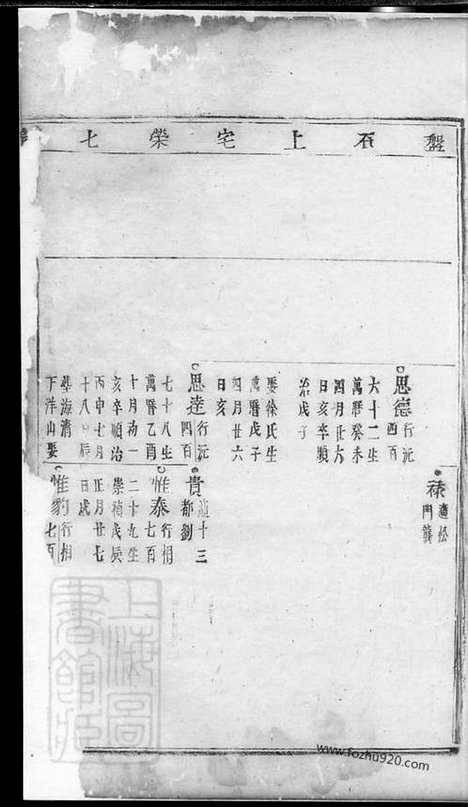 盤石上宅榮七
思德行沅
四百
六十二生
萬曆癸未
四月廿六
日亥卒順
治戊子
娶徐氏生
萬曆戊子
四月廿六
日亥
思達行沅
四百
七十八生
萬曆乙酉
十月初一
亥卒順治
丙申七月
十八日辰
葬海濱
下洋山娶
祿適松
門龔
貴適十三
都劉
惟泰行相
七百
二十九生
崇禎戊辰
正月廿七
日戌
惟豹行相
七百
上海圖
書館藏
www.fozhu920.com